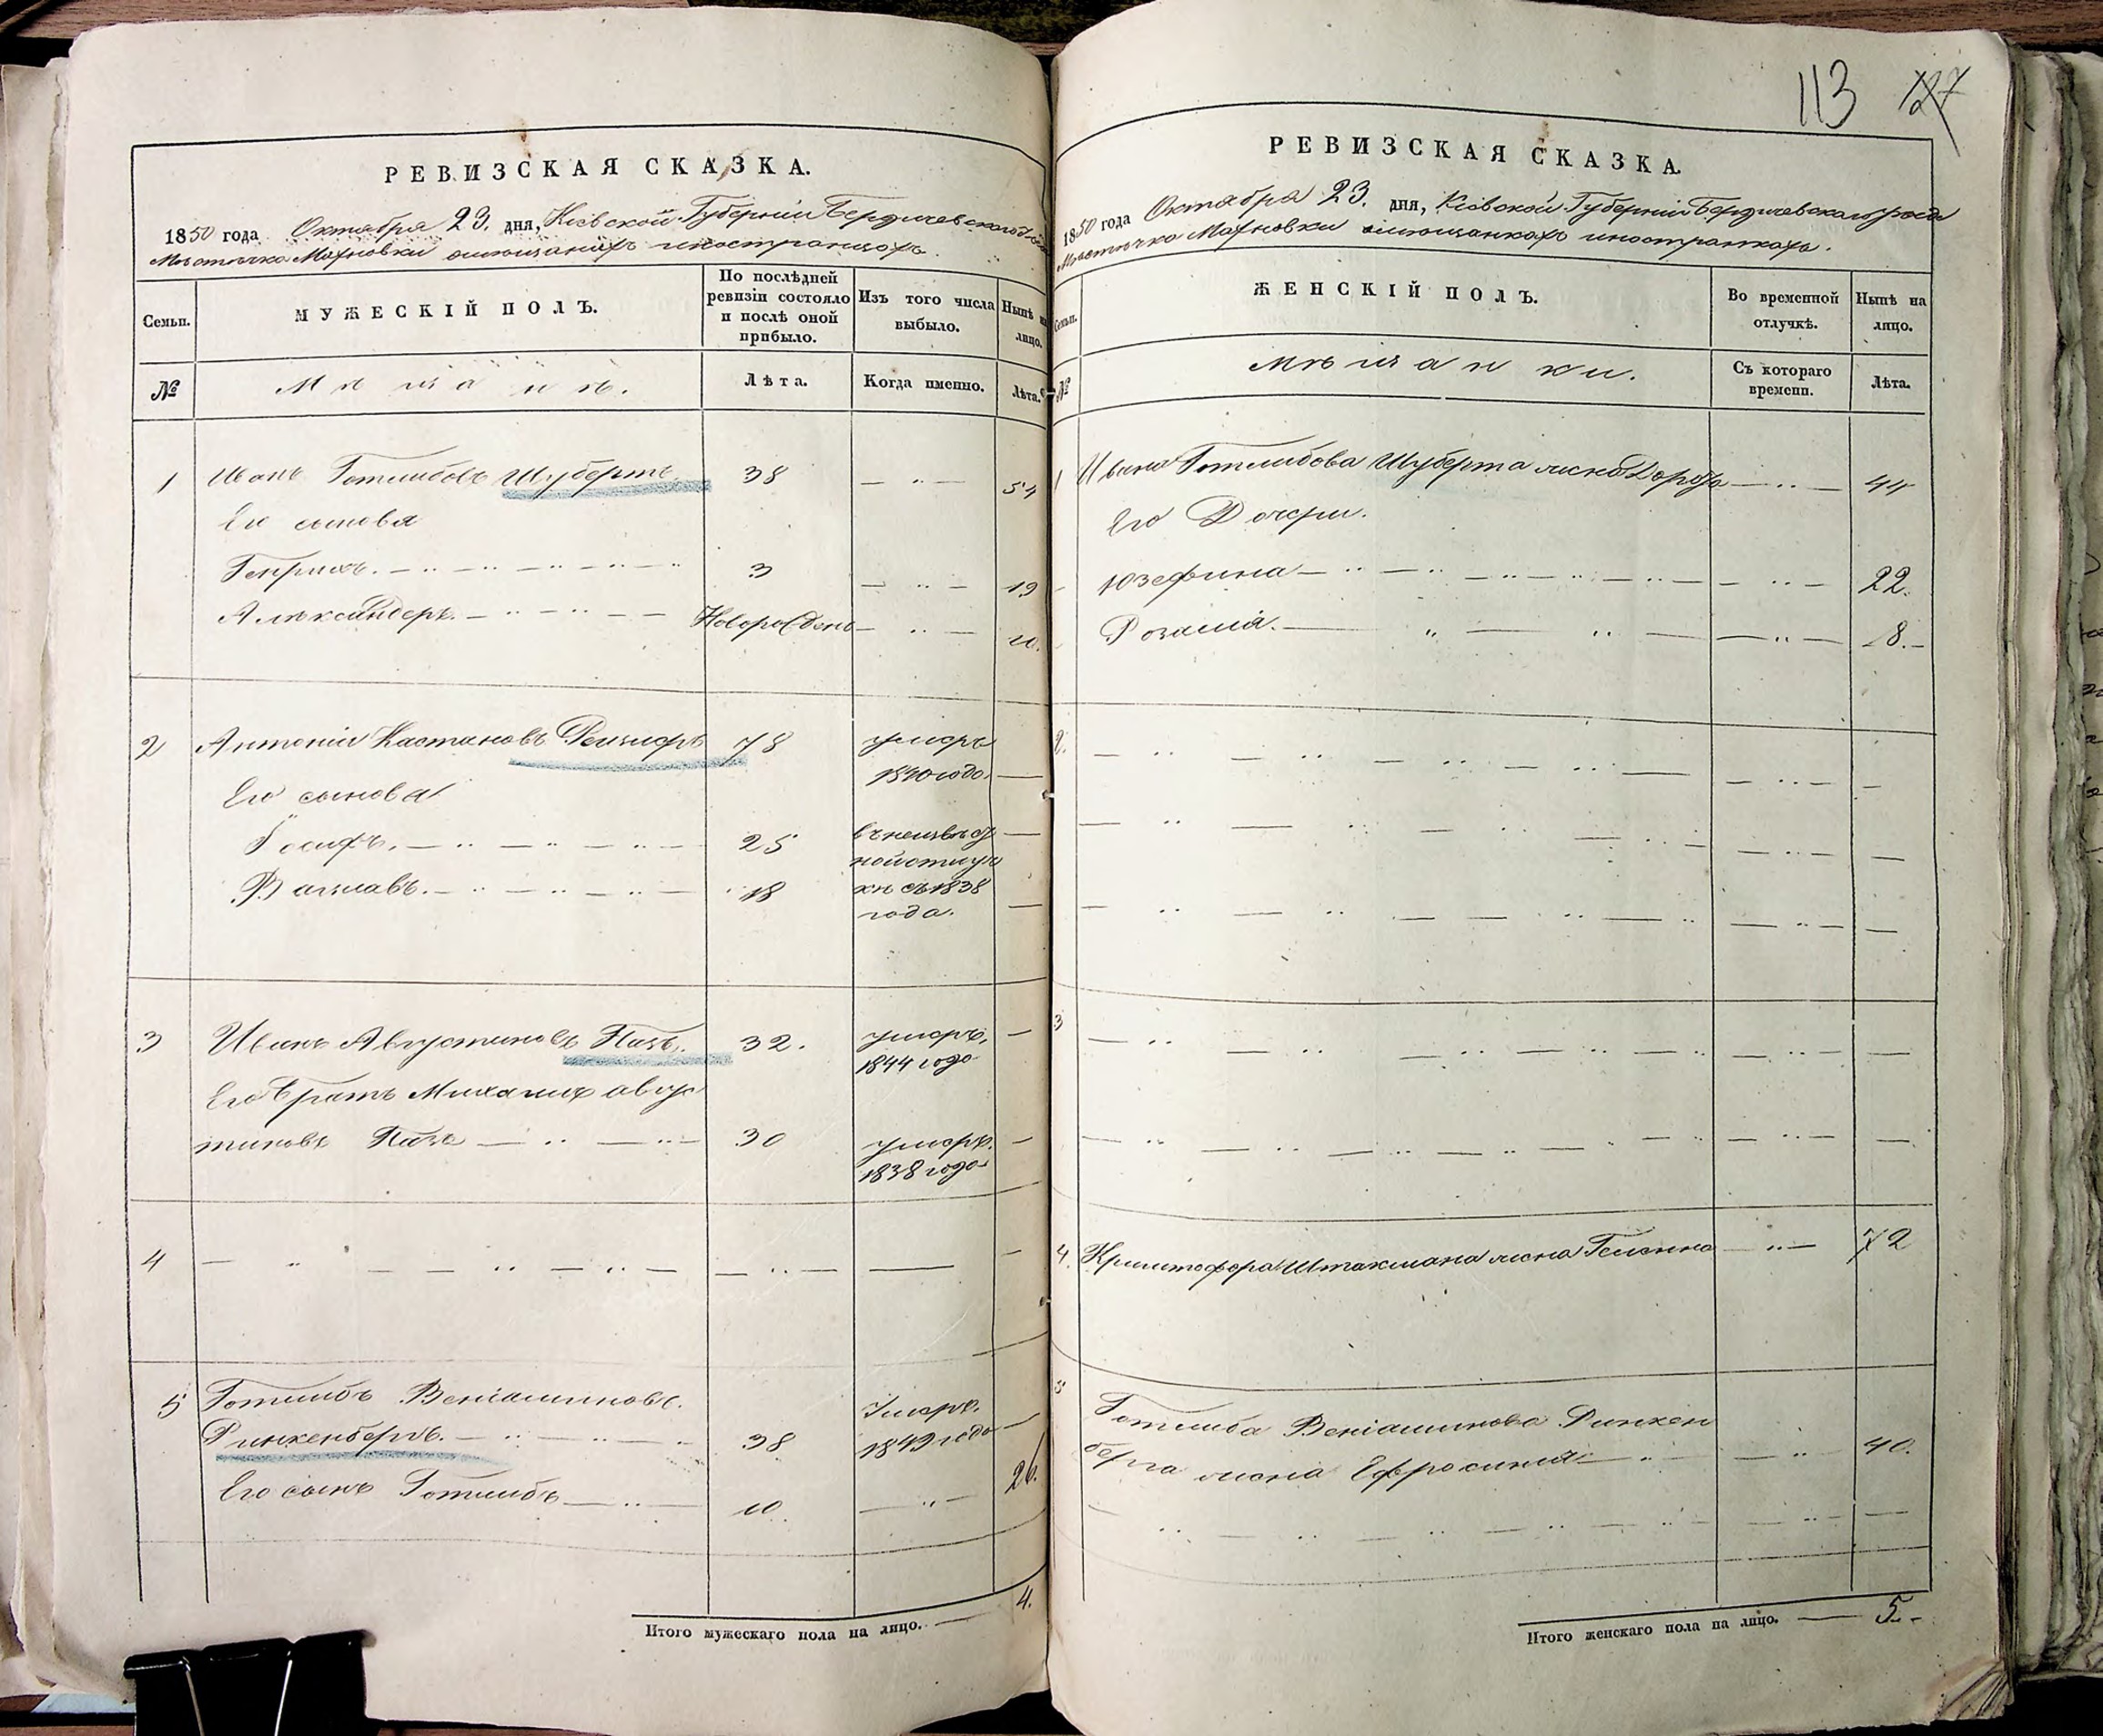 РЕВИЗСКАЯ СКАЗКА.
1850 года Октября 23. дня, Кіевской Губерніи Бердичевского
Мѣстечка Махновки о мѣщанахъ иностранцахъ.
Семьи.
МУЖЕСКІЙ ПОЛЪ.
По послѣдней ревизіи состояло и послѣ оной прибыло.
Изъ того числа выбыло.
Нынѣ на лицо.
№
Мѣщанъ.
Лѣта.
Когда именно.
Лѣта.
1 Иванъ Готлибовъ Шубертъ 38 — " — 54
Его сыновя
Генрихъ. 3 — " — 19
Александеръ. Новорожденъ — " —
2 Антоній Каетановъ 78 умеръ
1840 года. —
Его сыновя
Іосифъ. 25 въ неизвѣст —
ной отлуч
Вацлавъ. 18 кѣ съ 1838 —
года.
3 Иванъ Августиновъ Пазъ. 32. умеръ, —
1844 года
Его братъ Михаилъ авгус
тиновъ Пазъ — " — 30 умеръ. —
1838 года
4 — " — — " — —
5 Готлибъ Веніаминовъ. Умеръ.
Ринкенбергъ. 38 1849 года —
Его сынъ Готлибъ — " — 10 — " — 26.
Итого мужескаго пола на лицо. — 4.
113 127
РЕВИЗСКАЯ СКАЗКА.
1850 года Октября 23. дня, Кіевской Губерніи Бердичевскаго уезда
Мѣстечка Махновки о мѣщанкахъ иностранкахъ.
Семьи.
ЖЕНСКІЙ ПОЛЪ.
Во временной отлучкѣ.
Нынѣ на лицо.
№
Мѣщанки.
Съ котораго времени.
Лѣта.
1 Ивана Готлибова Шуберта жена — " — 44
Его Дочери.
Юзефина — " — 22.
Розалія. — " — 8. —
2. — " —
3 — " —
4. Криштофора Штакмана жена Гелена — " — 72
5 Готлиба Веніаминова Ринкен
берга жена Ефросинія — " — 40.
Итого женскаго пола на лицо. — 5. -